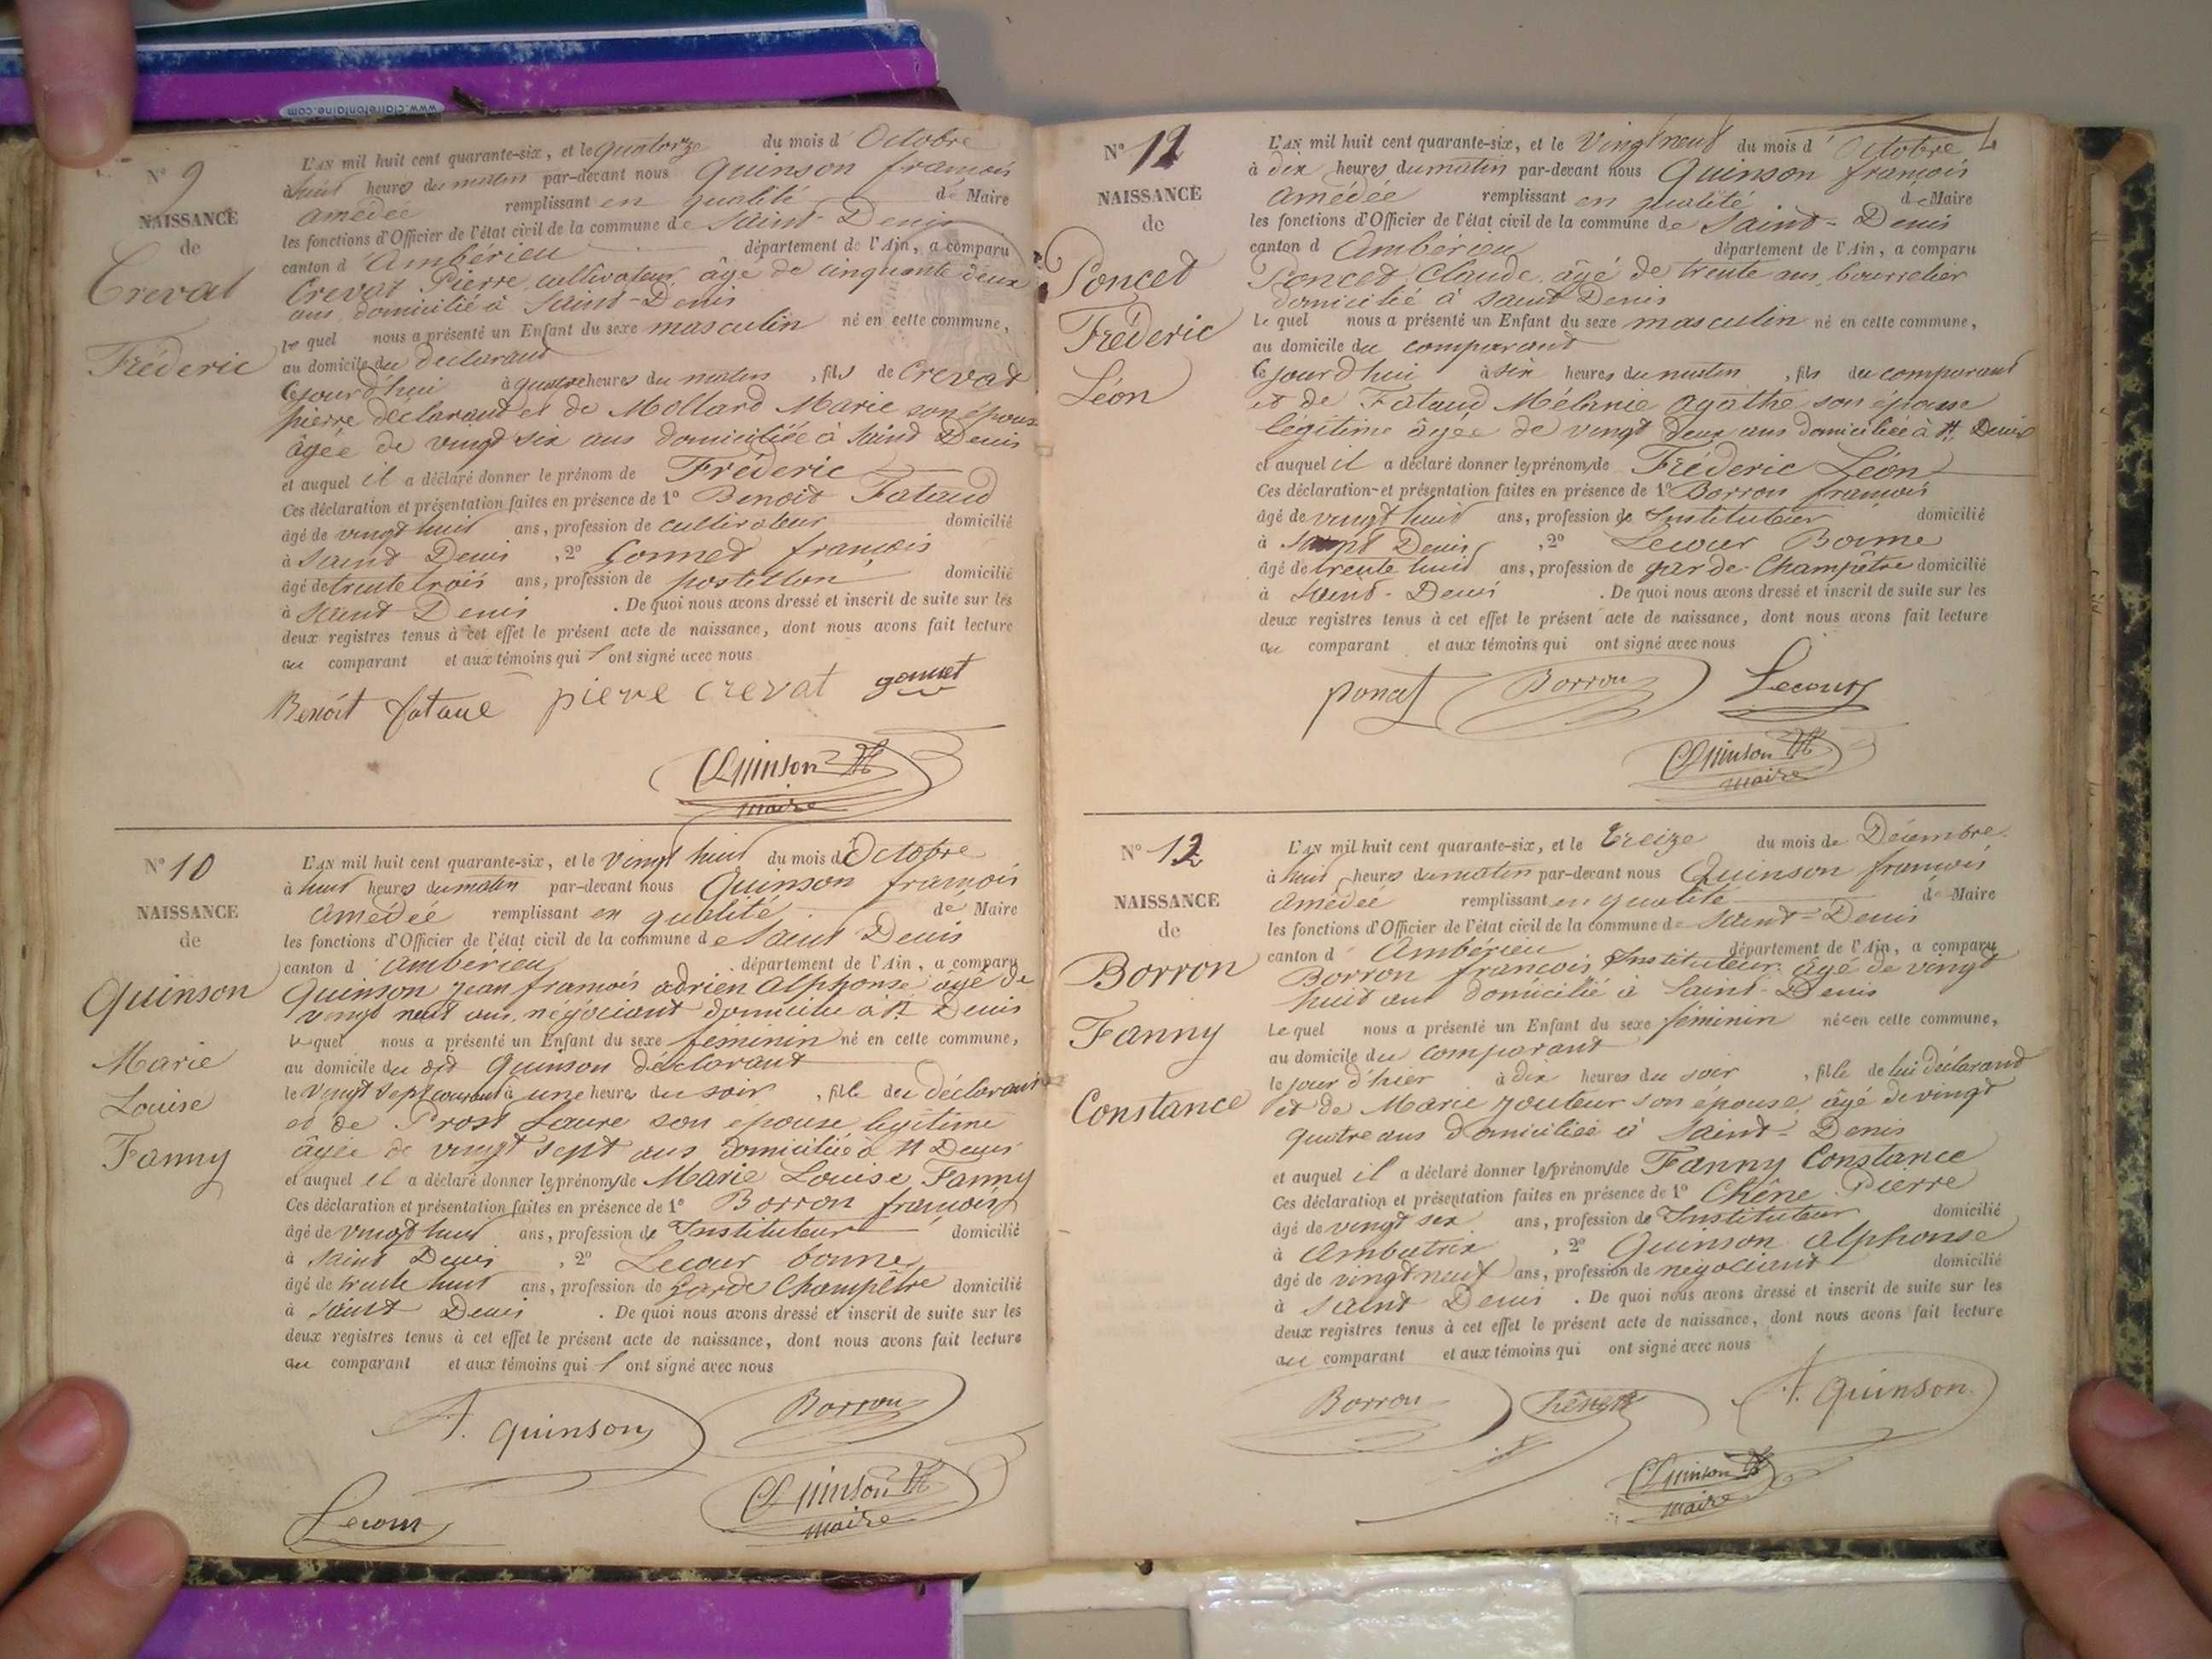 www.clairefontaine.com
N° 9
NAISSANCE
de
Crevat
Fréderic
L'AN mil huit cent quarante-six, et le quatorze du mois d'Octobre
à huit heures du matin par-devant nous Quinson françois
amédée remplissant en qualité de Maire
les fonctions d'Officier de l'état civil de la commune de Saint-Denis
canton d'Ambérieu département de l'Ain, a comparu
Crevat Pierre, cultivateur, âgé de cinquante deux
ans, domicilié à Saint-Denis
lequel nous a présenté un Enfant du sexe masculin né en cette commune,
au domicile du déclarant
cejourd'hui à quatre heures du matin, fils de Crevat
pierre déclarant et de Mollard Marie son épouse
âgée de vingt six ans domiciliée à Saint Denis
et auquel il a déclaré donner le prénom de Fréderic
Ces déclaration et présentation faites en présence de 1° Benoit Fataud
âgé de vingt huit ans, profession de cultivateur domicilié
à Saint Denis, 2° Gonnet françois
âgé de trente trois ans, profession de postillon domicilié
à Saint-Denis. De quoi nous avons dressé et inscrit de suite sur les
deux registres tenus à cet effet le présent acte de naissance, dont nous avons fait lecture
au comparant et aux témoins qui ont signé avec nous
Benoit fataud pierre crevat gonnet
Quinson
maire
N° 10
NAISSANCE
de
Quinson
Marie
Louise
Fanny
L'AN mil huit cent quarante-six, et le vingt huit du mois d'Octobre
à huit heures du matin par-devant nous Quinson françois
Amédée remplissant en qualité de Maire
les fonctions d'Officier de l'état civil de la commune de Saint Denis
canton d'ambérieu département de l'Ain, a comparu
Quinson jean françois adrien Alphonse âgé de
vingt neuf ans, négociant domicilié à St Denis
lequel nous a présenté un Enfant du sexe féminin né en cette commune,
au domicile du dit Quinson déclarant
le vingt sept courant à une heures du soir, fille du déclarant
et de Prost Laure son épouse légitime
âgée de vingt sept ans domiciliée à St Denis
et auquel il a déclaré donner les prénoms de Marie Louise Fanny
Ces déclaration et présentation faites en présence de 1° Borron françois
âgé de vingt huit ans, profession de Instituteur domicilié
à Saint Denis, 2° Lecour bonne
âgé de trente huit ans, profession de Garde Champêtre domicilié
à Saint Denis. De quoi nous avons dressé et inscrit de suite sur les
deux registres tenus à cet effet le présent acte de naissance, dont nous avons fait lecture
au comparant et aux témoins qui ont signé avec nous
A. Quinson Borron
Lecour Quinson
maire
N° 11
NAISSANCE
de
Poncet
Fréderic
Léon
L'AN mil huit cent quarante-six, et le vingt neuf du mois d'Octobre
à dix heures du matin par-devant nous Quinson françois
Amédée remplissant en qualité de Maire
les fonctions d'Officier de l'état civil de la commune de Saint-Denis
canton d'Ambérieu département de l'Ain, a comparu
Poncet Claude, âgé de trente ans, bourrelier
domicilié à Saint Denis
lequel nous a présenté un Enfant du sexe masculin né en cette commune,
au domicile du comparant
cejourd'hui à six heures du matin, fils du comparant
et de Fataud Mélanie Agathe son épouse
légitime âgée de vingt deux ans domiciliée à St Denis
et auquel il a déclaré donner les prénoms de Fréderic Léon
Ces déclaration et présentation faites en présence de 1° Borron françois
âgé de vingt huit ans, profession de Instituteur domicilié
à Saint Denis, 2° Lecour Bonne
âgé de trente huit ans, profession de garde-Champêtre domicilié
à Saint-Denis. De quoi nous avons dressé et inscrit de suite sur les
deux registres tenus à cet effet le présent acte de naissance, dont nous avons fait lecture
au comparant et aux témoins qui ont signé avec nous
poncet Borron Lecour
Quinson
maire
N° 12
NAISSANCE
de
Borron
Fanny
Constance
L'AN mil huit cent quarante-six, et le treize du mois de Décembre
à huit heures du matin par-devant nous Quinson françois
Amédée remplissant en qualité de Maire
les fonctions d'Officier de l'état civil de la commune de Saint-Denis
canton d'Ambérieu département de l'Ain, a comparu
Borron françois Instituteur, âgé de vingt
huit ans domicilié à Saint-Denis
Lequel nous a présenté un Enfant du sexe féminin née en cette commune,
au domicile du comparant
le jour d'hier à dix heures du soir, fille de lui déclarant
et de Marie son épouse, âgé de vingt
quatre ans domiciliée à Saint-Denis
et auquel il a déclaré donner les prénoms de Fanny Constance
Ces déclaration et présentation faites en présence de 1° Chêne Pierre
âgé de vingt six ans, profession de Instituteur domicilié
à Ambutrix, 2° Quinson Alphonse
âgé de vingt neuf ans, profession de négociant domicilié
à Saint Denis. De quoi nous avons dressé et inscrit de suite sur les
deux registres tenus à cet effet le présent acte de naissance, dont nous avons fait lecture
au comparant et aux témoins qui ont signé avec nous
Borron Chêne A. Quinson
Quinson
maire